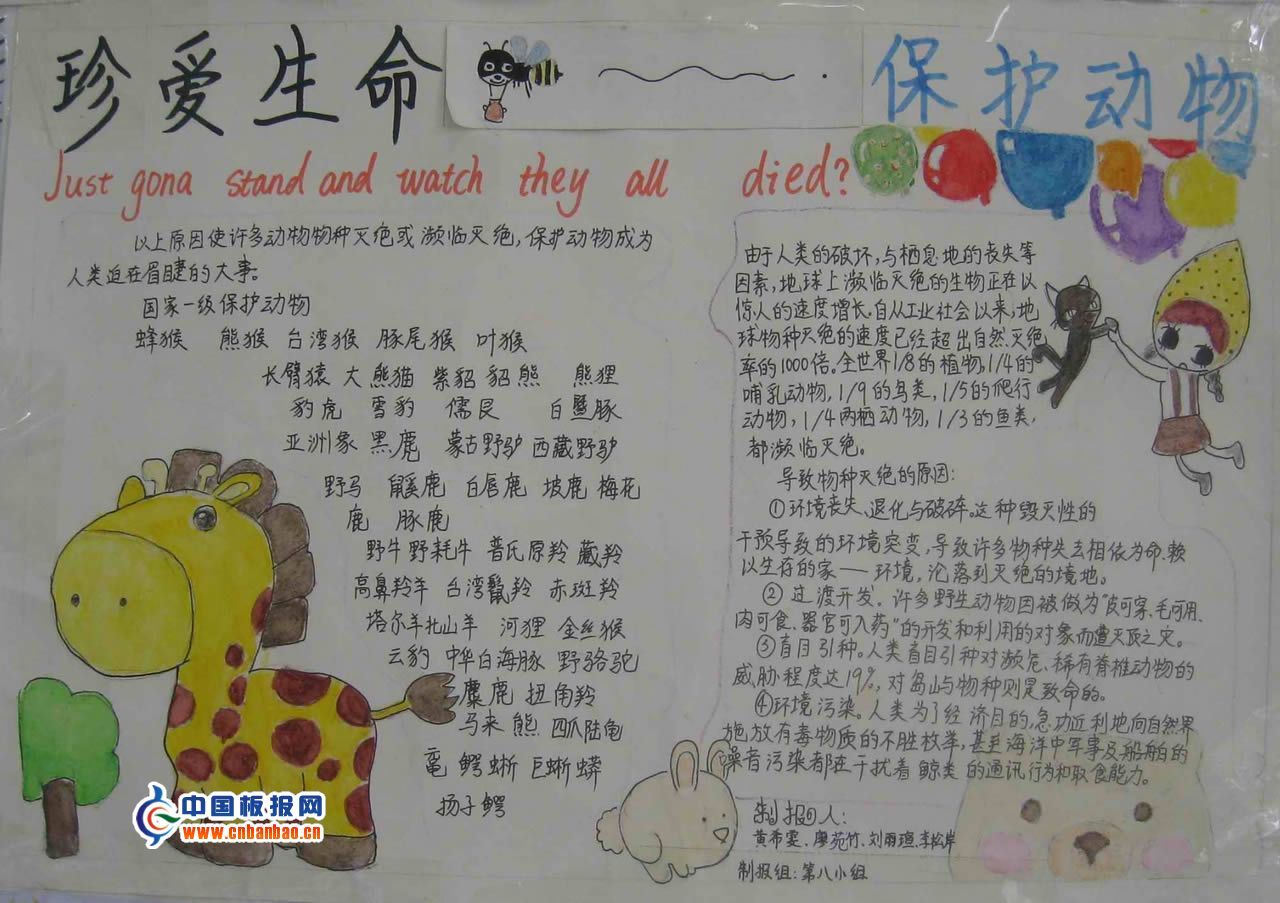 珍爱生命
保护动物
Just gona stand and watch they all died?
以上原因使许多动物物种灭绝或濒临灭绝,保护动物成为
人类迫在眉睫的大事。
国家一级保护动物
蜂猴 熊猴 台湾猴 豚尾猴 叶猴
长臂猿 大熊猫 紫貂 貂熊 熊狸
豹虎 雪豹 儒艮 白鱀豚
亚洲象 黑鹿 蒙古野驴 西藏野驴
野马 鼷鹿 白唇鹿 坡鹿 梅花
鹿 豚鹿
野牛 野耗牛 普氏原羚 藏羚
高鼻羚羊 台湾鬣羚 赤斑羚
塔尔羊北山羊 河狸 金丝猴
云豹 中华白海豚 野骆驼
麋鹿 扭角羚
马来熊 四爪陆龟
鼋 鳄蜥 巨蜥 蟒
扬子鳄
由于人类的破坏,与栖息地的丧失等
因素,地球上濒临灭绝的生物正在以
惊人的速度增长。自从工业社会以来,地
球物种灭绝的速度已经超出自然灭绝
率的1000倍。全世界1/8的植物,1/4的
哺乳动物,1/9的鸟类,1/5的爬行
动物,1/4两栖动物,1/3的鱼类,
都濒临灭绝。
导致物种灭绝的原因:
①环境丧失、退化与破碎。这种毁灭性的
干预导致的环境突变,导致许多物种失去相依为命、赖
以生存的家——环境,沦落到灭绝的境地。
② 过渡开发。许多野生动物因被做为“皮可穿、毛可用、
肉可食、器官可入药”的开发和利用的对象而遭灭顶之灾。
③盲目引种。人类盲目引种对濒危、稀有脊椎动物的
威胁程度达19%,对岛屿与物种则是致命的。
④环境污染。人类为了经济目的,急功近利地向自然界
施放有毒物质的不胜枚举,甚至海洋中军事及船舶的
噪音污染都在干扰着鲸类的通讯行为和取食能力。
制报人:
黄希雯、廖苑竹、刘丽瑄、李松岸
制报组:第八小组
中国板报网
www.cnbanbao.cn